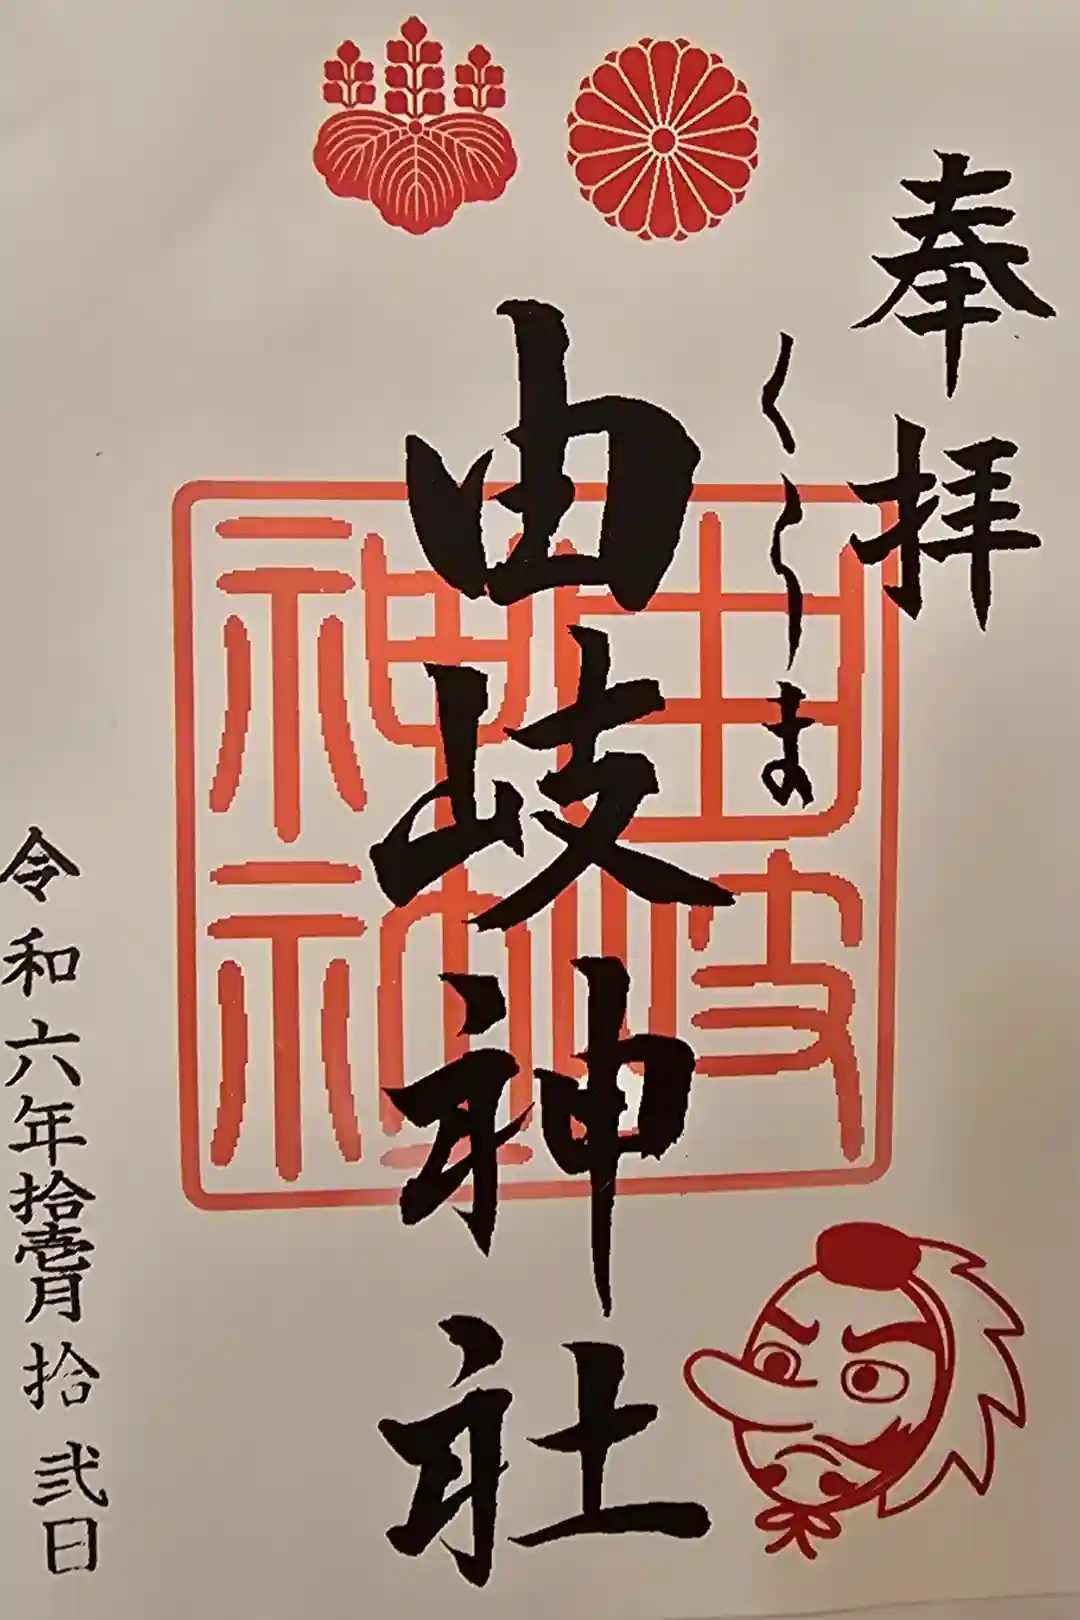 奉拝
くらま
由岐神社
令和六年拾壱月拾弐日
由岐神社